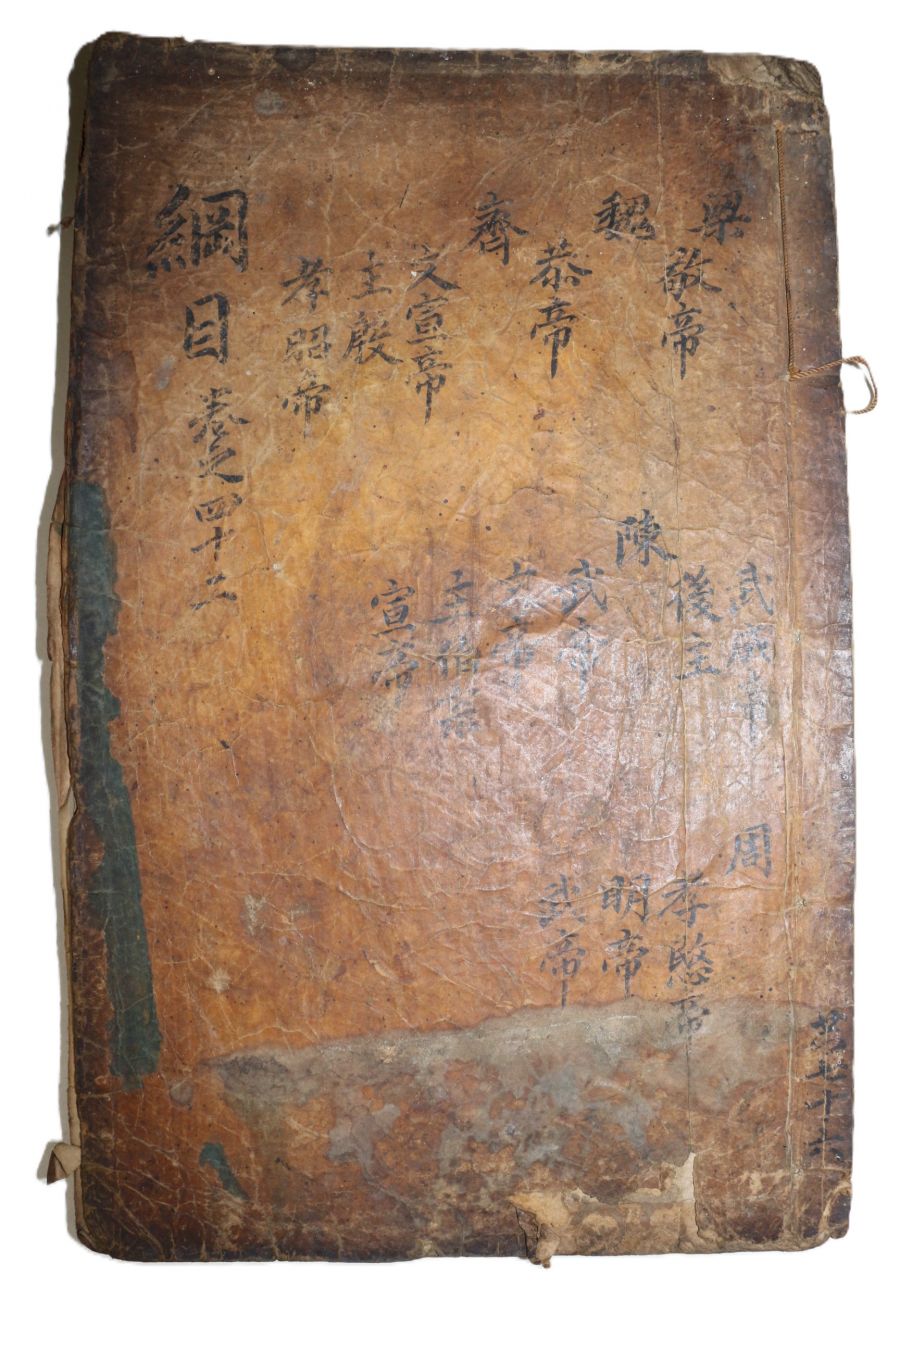 梁
敬帝
魏
恭帝
齊
文宣帝
主殷
孝昭帝
武成帝
後主
陳
武帝
文帝
主伯宗
宣帝
周
孝愍帝
明帝
武帝
綱目 卷之四十二
第七十六